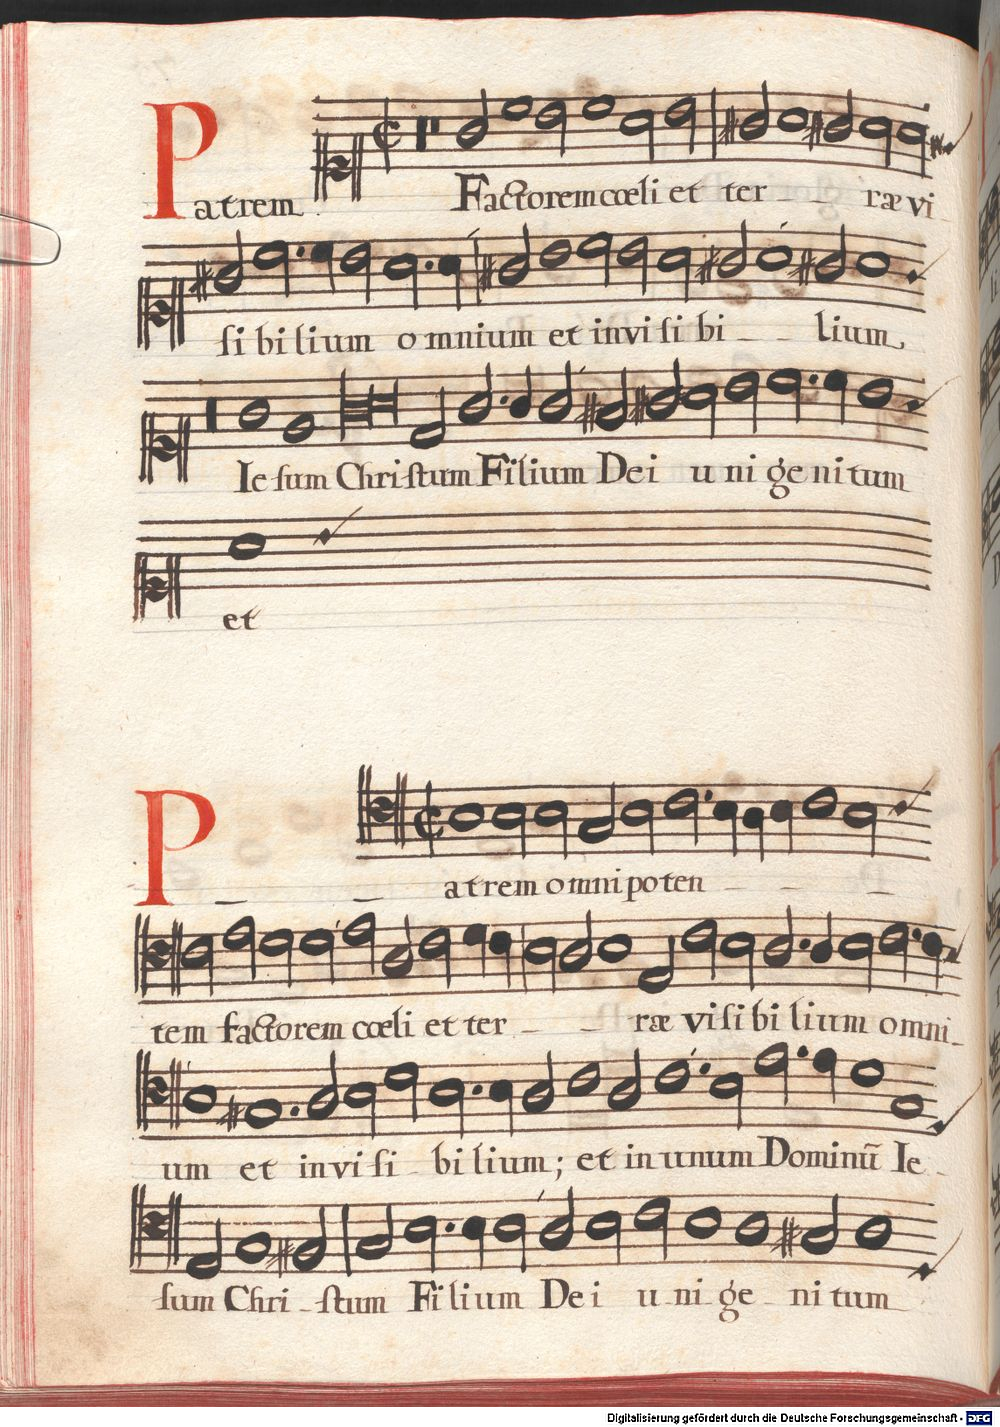 Patrem Factorem cœli et ter - - ræ vi
ſi bi lium omnium et inviſibi - - lium
Ieſum Chriſtum Filium Dei unigenitum
et
P - - atrem omnipoten - - -
tem factorem cœli et ter - - ræ viſibilium omni
um et inviſi - bilium; et in unum Dominū Ie -
ſum Chri - ſtum Filium Dei u - ni - ge - nitum
Digitalisierung gefördert durch die Deutsche Forschungsgemeinschaft - DFG